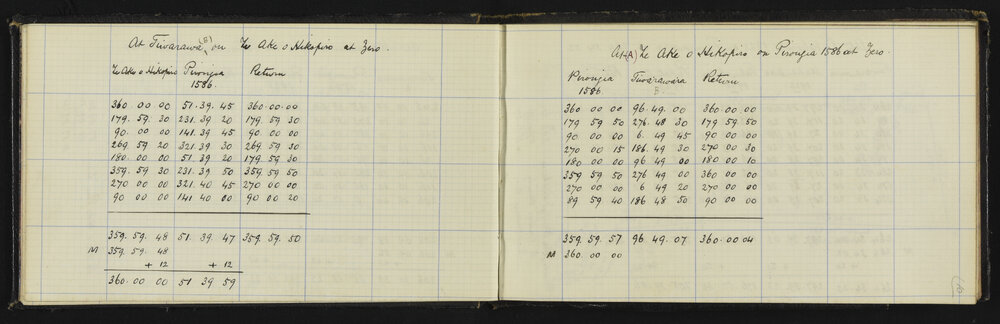 At Tiwarawa (B) on Te Ake o Hikopiro at Zero.
Te Ake o Hikopiro Pirongia Return
1586.
360. 00 00 51. 39. 45 360. 00. 00
179. 59 30 231. 39 20 179. 59 30
90. 00 00 141. 39 45 90. 00 00
269 59 20 321. 39 30 269 59 30
180. 00 00 51. 39 20 179. 59 30
359. 59 30 231. 39 50 359. 59 50
270 00 00 321. 40 45 270 00 00
90 00 00 141 40 00 90 00 20
359. 59. 48 51. 39. 47 359. 59. 50
M 359. 59. 48
+ 12 + 12
360. 00 00 51 39 59
At (A) Te Ake o Hikopiro on Pirongia 1586 at Zero.
Pirongia Tiwarawara Return
1586. B.
360 00 00 96. 49. 00 360. 00 00
179 59 50 276. 48 30 179 59 50
90 00 00 6. 49 45 90. 00 00
270 00 15 186. 49 30 270 00 30
180 00 00 96 49 00 180 00 10
359 59 50 276 49 00 360 00 00
270 00 00 6 49 20 270 00 00
89 59 40 186 48 50 90 00 00
359. 59. 57 96. 49. 07 360. 00 04
M 360. 00 00